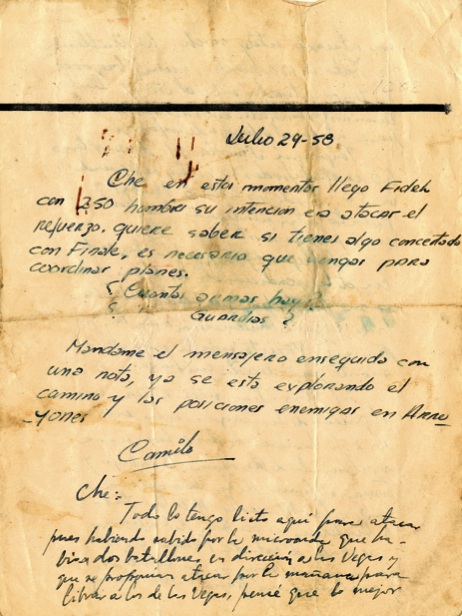 Julio 29-58
Che en estos momentos llego Fidel
con 350 hombres su intencion es atacar el
refuerzo. quiere saber si tienes algo concertado
con Finale, es necesario que vengas para
coordinar planes.
¿ Cuantas armas hay?
¿ Guardias ?
Mandame el mensajero enseguida con
una nota, ya se esta explorando el
camino y las posiciones enemigas en Arro
-yones
Camilo
Che:
Todo lo tengo listo aquí para atacar
pues habiendo sabido por la microonda que ha-
bía dos batallones en dirección a las Vegas y
que se proponian atacar por la mañana para
librar a los de las Vegas, pensé que lo mejor